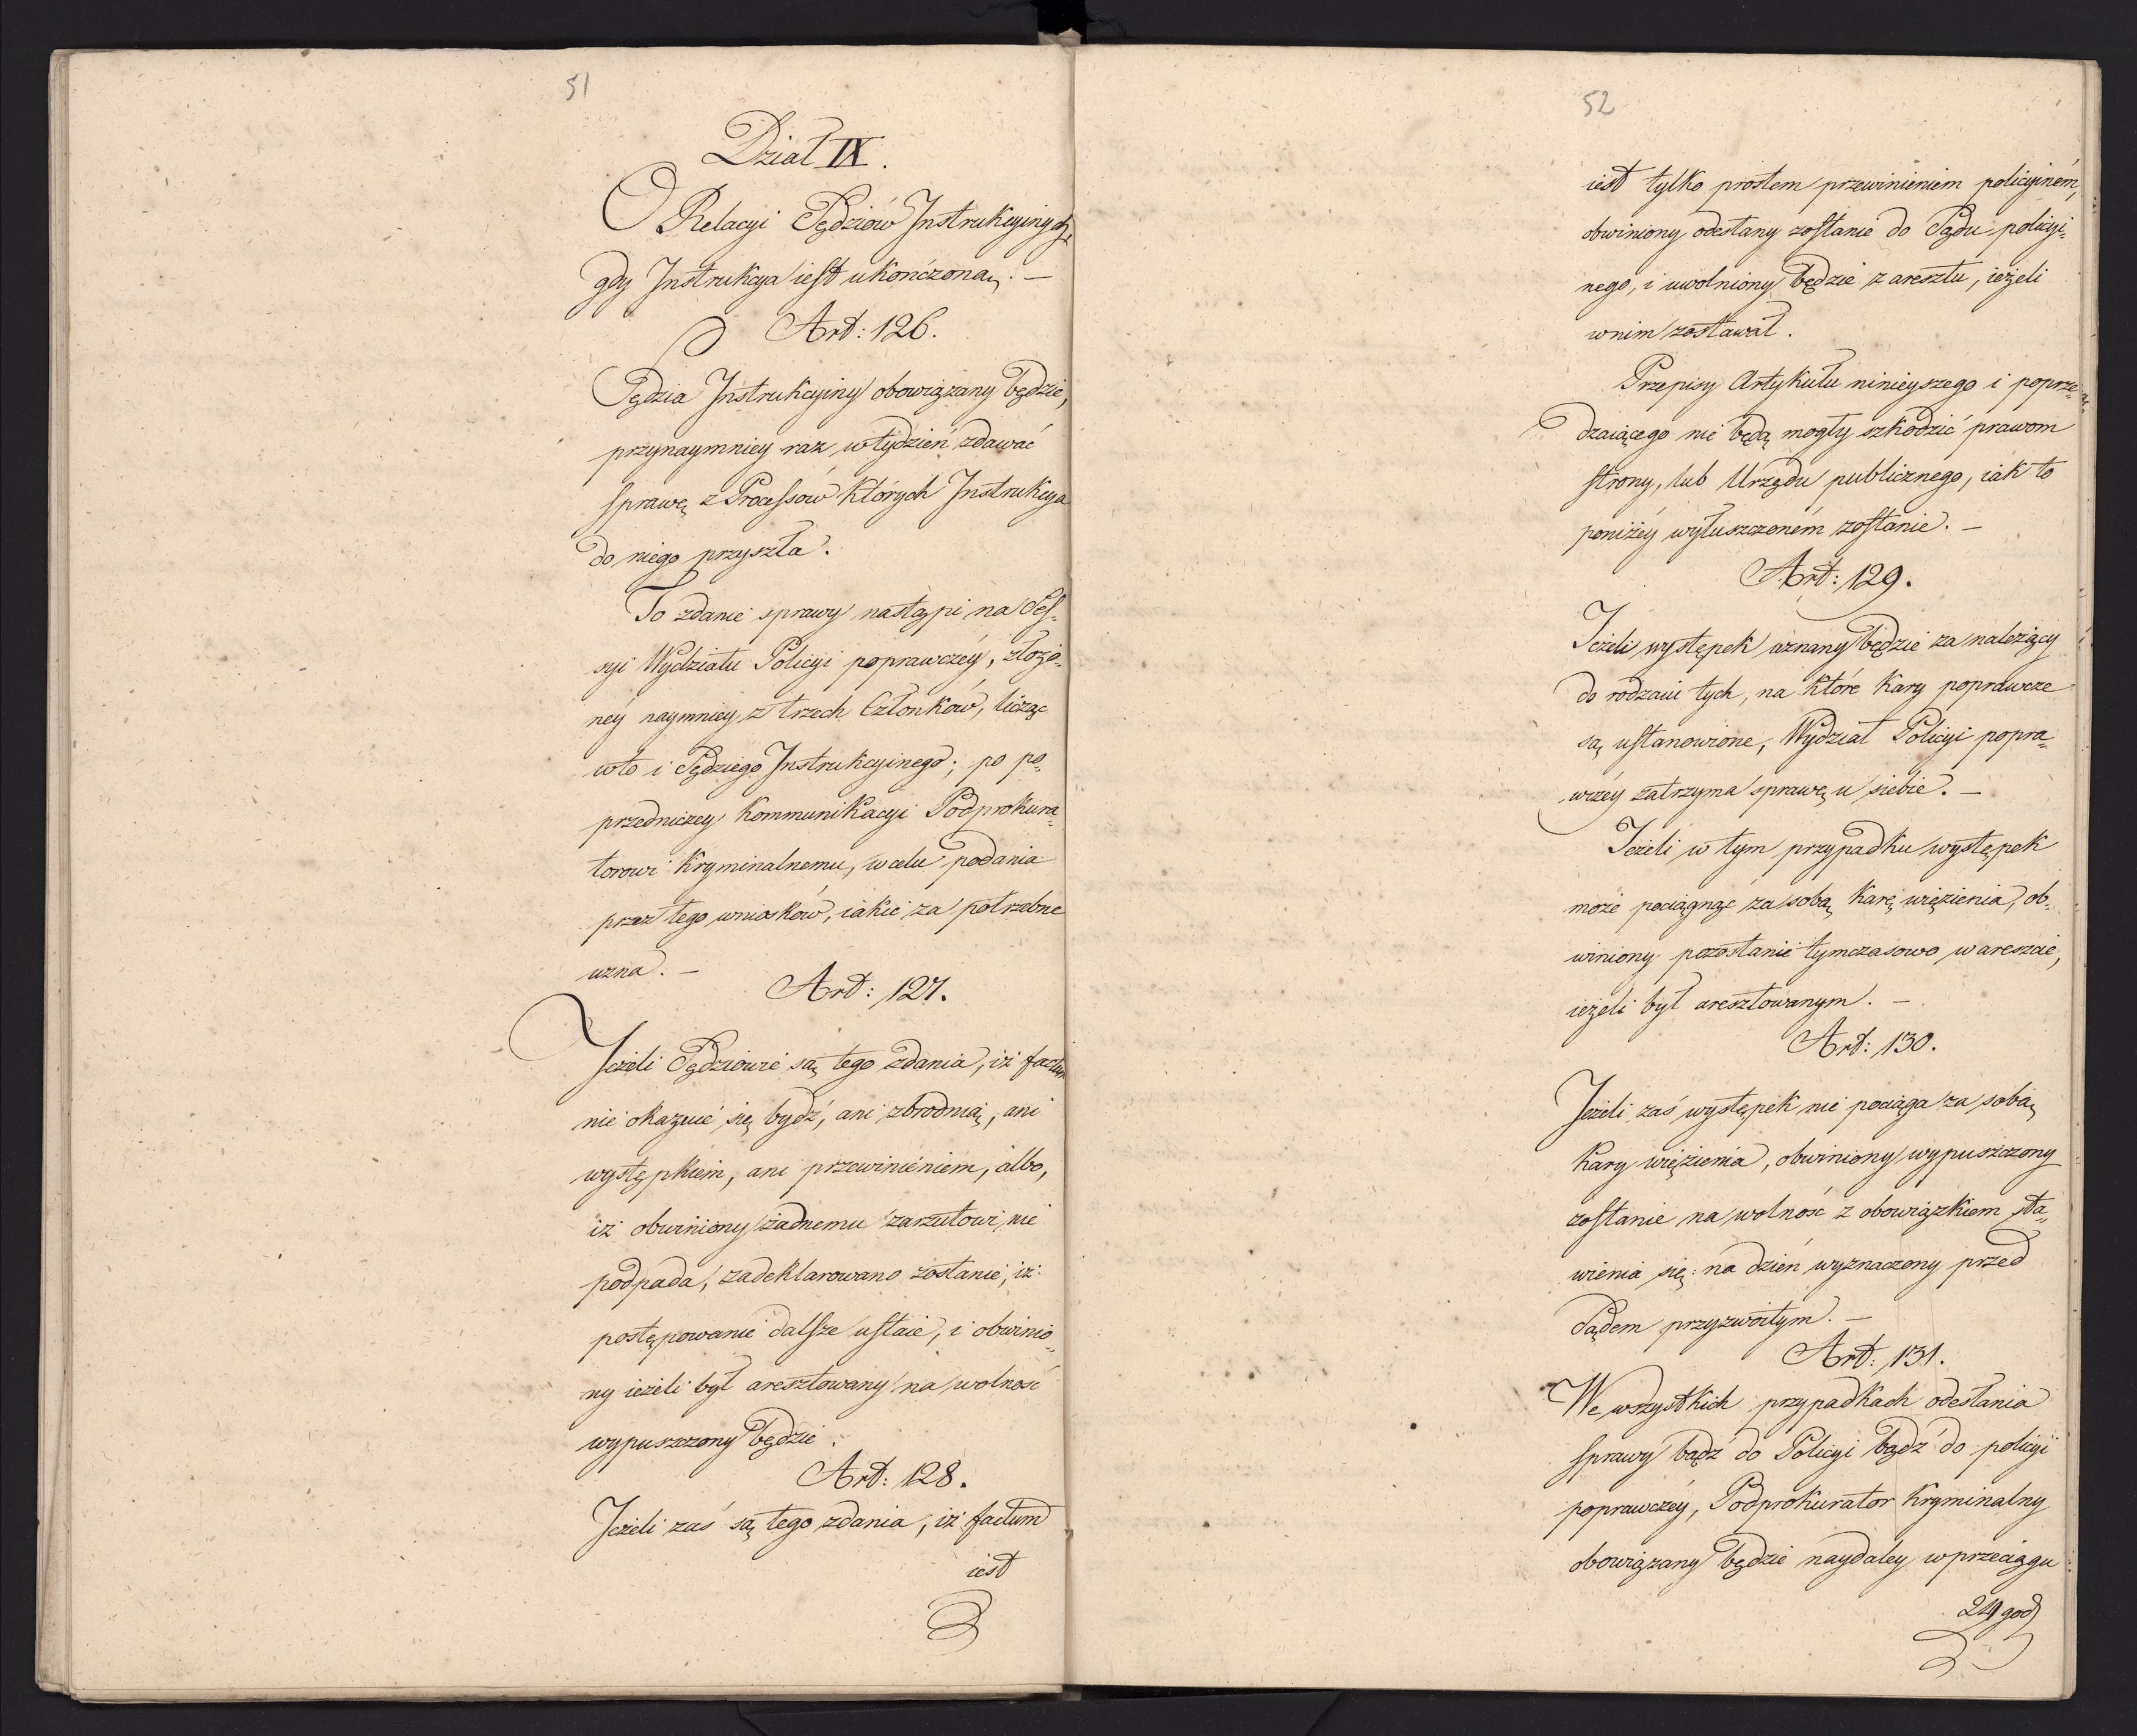 51
Dział IX.
O Relacyi Sędziów Instrukcyinych,
gdy Instrukcya iest ukończoną. —
Art: 126.
Sędzia Instrukcyiny obowiązany będzie,
przynaymniey raz w tydzień zdawać
sprawę z Processów których Instrukcya
do niego przyszła.
To zdanie sprawy nastąpi na Ses-
syi Wydziału Policyi poprawczéy, złożo-
néy naymniey z trzech Członków, licząc
w to i Sędziego Instrukcyinego; po po-
przedniczey kommunikacyi Podprokura-
torowi Kryminalnemu, w celu podania
przez tego wniosków, iakie za potrzebne
uzna. —
Art: 127.
Jeżeli Sędziowie są tego zdania, iż factum
nie okazuie się bydź, ani zbrodnią, ani
występkiem, ani przewinieniem, albo,
iż obwiniony żadnemu zarzutowi nie
podpada, zadeklarowano zostanie, iż
postępowanie dalsze ustaie, i obwinio-
ny ieżeli był aresztowany na wolność
wypuszczony będzie.
Art: 128.
Jeżeli zaś są tego zdania, iż factum
iest
52
iest tylko prostem przewinieniem policyiném,
obwiniony odesłany zostanie do Sądu policyi-
nego, i uwolniony będzie z aresztu, ieżeli
w nim zostawał.
Przepisy Artykułu ninieyszego i poprze-
dzaiącego nie będą mogły szkodzić prawom
strony, lub Urzędu publicznego, iak to
poniżéy wyłuszczoném zostanie. —
Art: 129.
Jeżeli występek uznany będzie za należący
do rodzaiu tych, na które kary poprawcze
są ustanowione, Wydział Policyi popra-
wczéy zatrzyma sprawę u siebie. —
Jeżeli w tym przypadku występek
może pociągnąć za sobą karę więzienia, ob-
winiony pozostanie tymczasowo w areszcie,
ieżeli był aresztowanym. —
Art: 130.
Jeżeli zaś występek nie pociąga za sobą
kary więzienia, obwiniony wypuszczony
zostanie na wolność z obowiązkiem sta-
wienia się na dzień wyznaczony przed
Sądem przyzwoitym. —
Art: 131.
We wszystkich przypadkach odesłania
sprawy bądź do Policyi bądź do policyi
poprawczéy, Podprokurator Kryminalny
obowiązany będzie naydaley w przeciągu
24 god